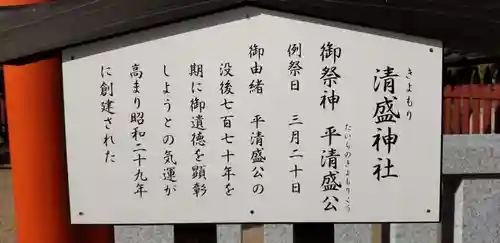 清盛神社
きよもり
御祭神　平清盛公
たいらのきよもりこう
例祭日　三月二十日
御由緒　平清盛公の
没後七百七十年を
期に御遺徳を顕彰
しようとの気運が
高まり昭和二十九年
に創建された